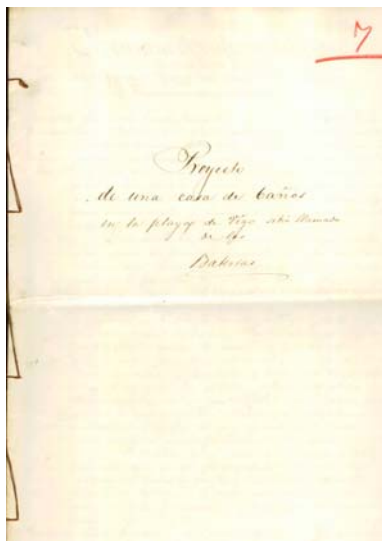 7
Proyecto
de una casa de baños
en la playa de Vigo sitio llamado
de las